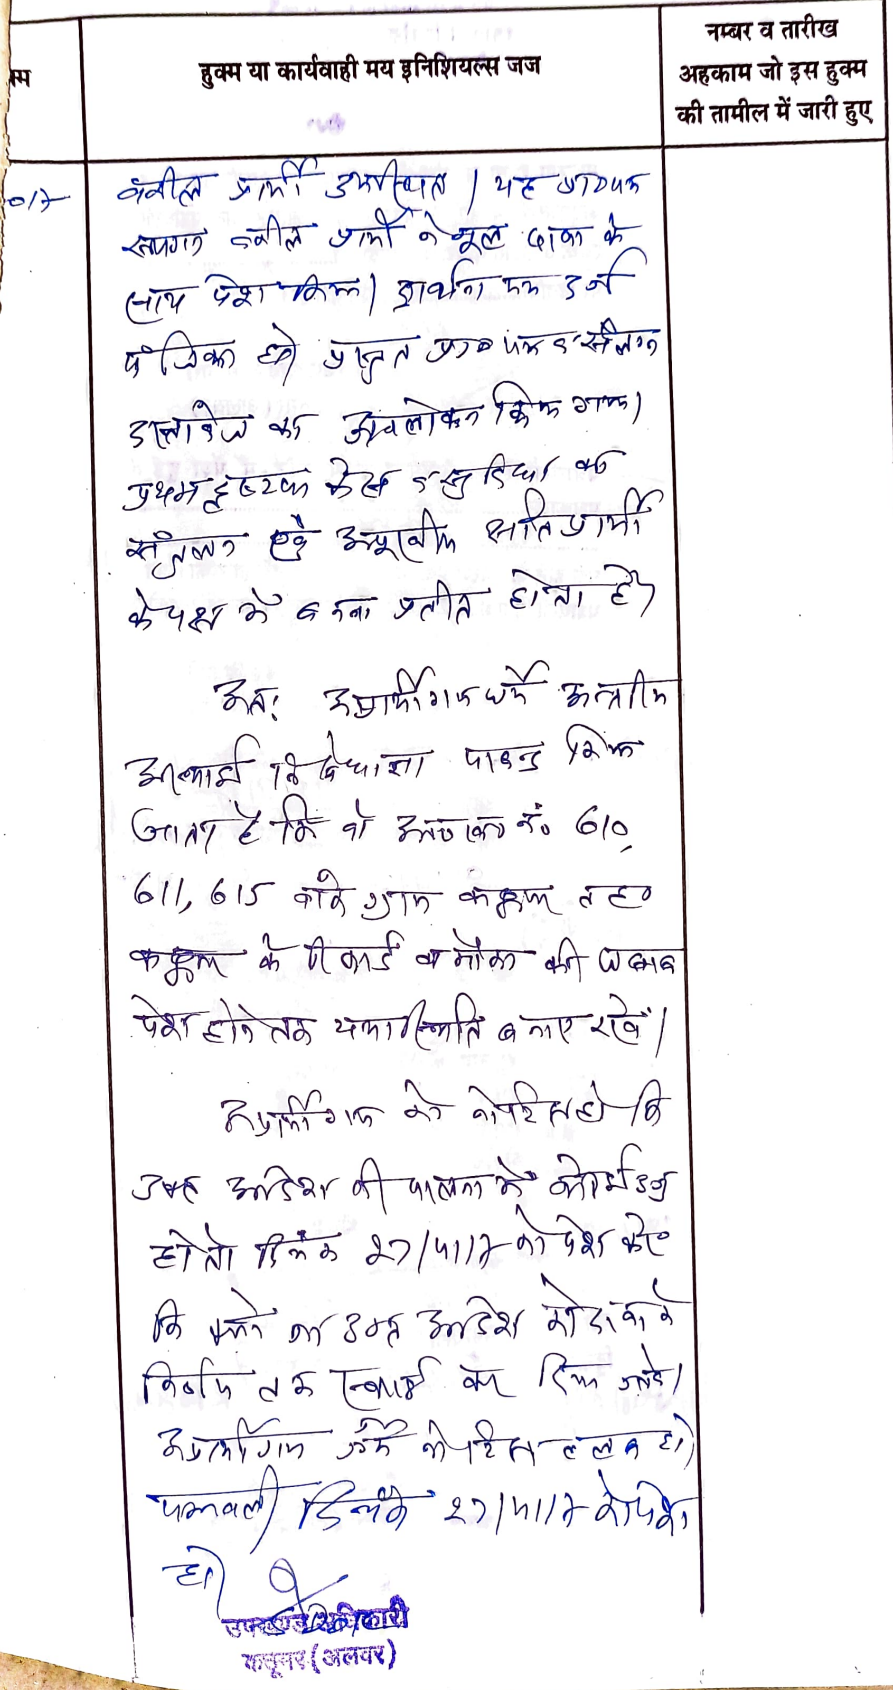 नम्बर व तारीख
हुक्म या कार्यवाही मय इनिशियल्स जज
अहकाम जो इस हुक्म
की तामील में जारी हुए
वकील प्रार्थी उपस्थित। यह प्रा०पत्र
स्थगन वकील प्रार्थी ने मूल दावा के
साथ पेश किया। प्रार्थना पत्र दर्ज
पंजिका हो। प्रस्तुत प्रा० पत्र व संलग्न
दस्तावेज का अवलोकन किया गया।
प्रथम दृष्टया केस व सुविधा का
संतुलन एवं अपूर्णीय क्षति प्रार्थी
के पक्ष में बनना प्रतीत होता है।
अतः अप्रार्थीगण को अन्तरिम
अस्थाई निषेधाज्ञा पाबन्द किया
जाता है कि वो आ० ख० नं० 610,
611, 615 वाके ग्राम तह०
के रिकार्ड व मौका की
पेश होने तक यथास्थिति बनाए रखें।
अप्रार्थीगण को नोटिस हो कि
उक्त आदेश की पालना में कोई उज्र
हो तो दिनांक 27/4/17 को पेश करे
कि क्यों ना उक्त आदेश को दावा के
निर्णय तक स्थाई कर दिया जावे।
अप्रार्थीगण जर्ये नोटिस तलब हो।
पत्रावली दिनांक 27/4/17 को पेश
हो।
उपखण्ड अधिकारी
कठूमर (अलवर)